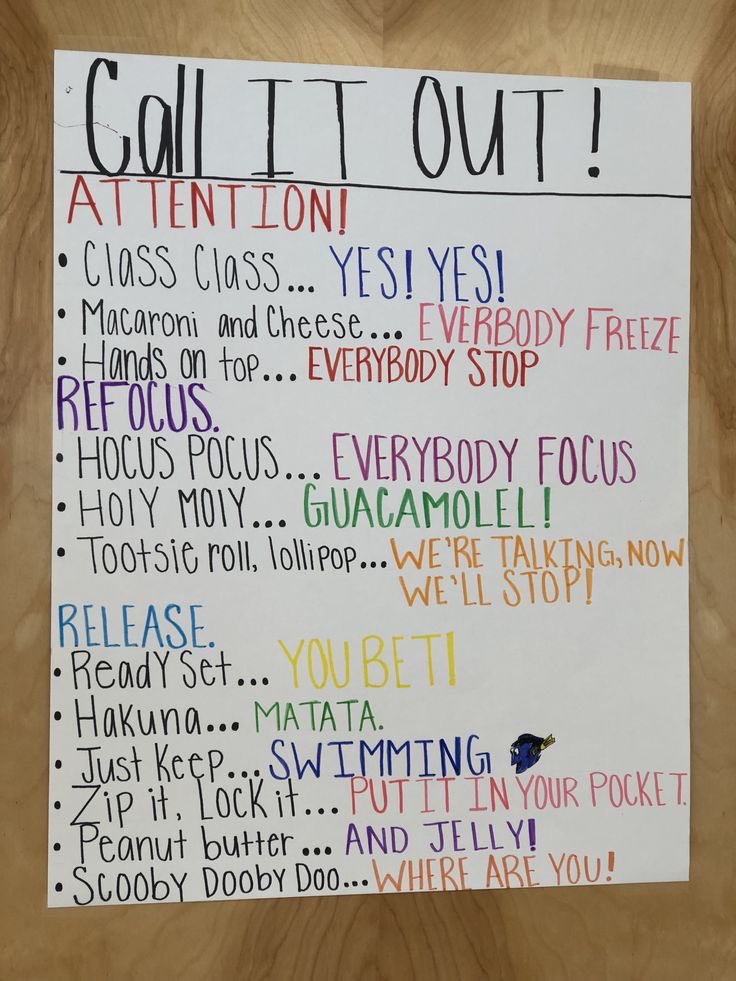 Call IT OUT!
ATTENTION!
• Class Class... YES! YES!
• Macaroni and Cheese... EVERBODY FREEZE
• Hands on top... EVERYBODY STOP
REFOCUS.
• HOCUS POCUS... EVERYBODY FOCUS
• HOlY MOlY... GUACAMOLEL!
• Tootsie roll, lollipop... WE'RE TALKING, NOW
WE'LL STOP!
RELEASE.
• ReadY Set... YOU BET!
• Hakuna... MATATA.
• Just Keep... SWIMMING
• Zip it, Lock it... PUT IT IN YOUR POCKET.
• Peanut butter... AND JELLY!
• Scooby Dooby Doo... WHERE ARE YOU!